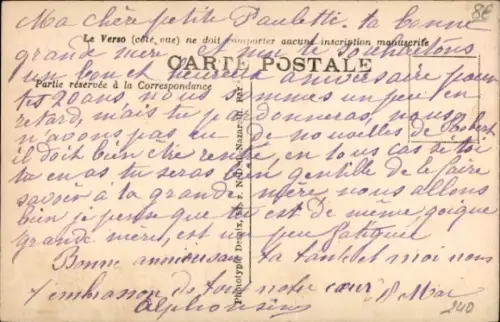 Ma chère petite Paulette. ta bonne
Le Verso (côté vue) ne doit comporter aucune inscription manuscrite
grande mère et moi te souhaitons
CARTE POSTALE
un bon et heureux anniversaire pour
Partie réservée à la Correspondance
tes 20 ans, nous sommes un peu en
retard, mais tu pardonneras, nous
n'avons pas eu de nouvelles de Robert
il doit bien être rentré, en tous cas si toi
tu en as tu seras bien gentille de le faire
savoir à ta grande mère nous allons
bien je pense que tu est de même
grande mère, est un peu fatiguée
Bonne anniversaire ta tante et moi nous
t'embrasson de tou notre cœur 8 Mai
Alphonsine
86
240